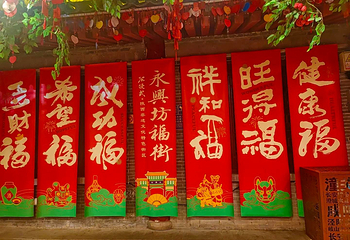 财福
希望福
成功福
永興坊福街
祥和福
旺得福
健康福